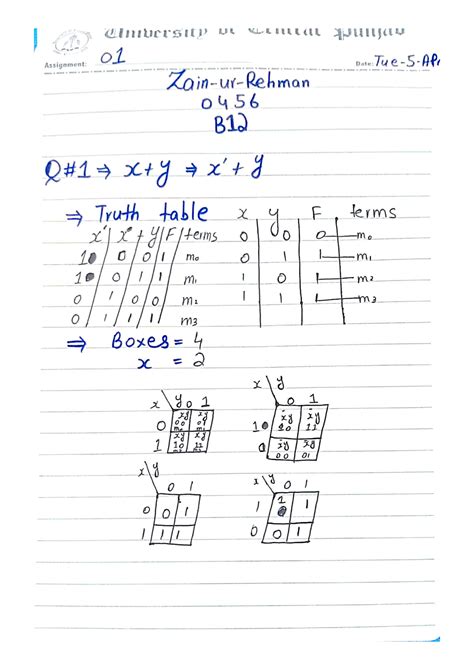 University of Central Punjab
Assignment: 01 Date: Tue-5-Ap
Zain-ur-Rehman
0456
B12
Q#1 ⇒ x+y ⇒ x'+y
⇒ Truth table
x' x y F terms
1 0 0 1 m₀
1 0 1 1 m₁
0 1 0 0 m₂
0 1 1 1 m₃
x y F terms
0 0 0 m₀
0 1 1 m₁
1 0 1 m₂
1 1 1 m₃
⇒ Boxes = 4
x = 2
x\y 0 1
0
1
x\y
0 1
1
0
x\y
0 1
0 0 1
1 1 1
x\y 0 1
1 1 1
0 0 1